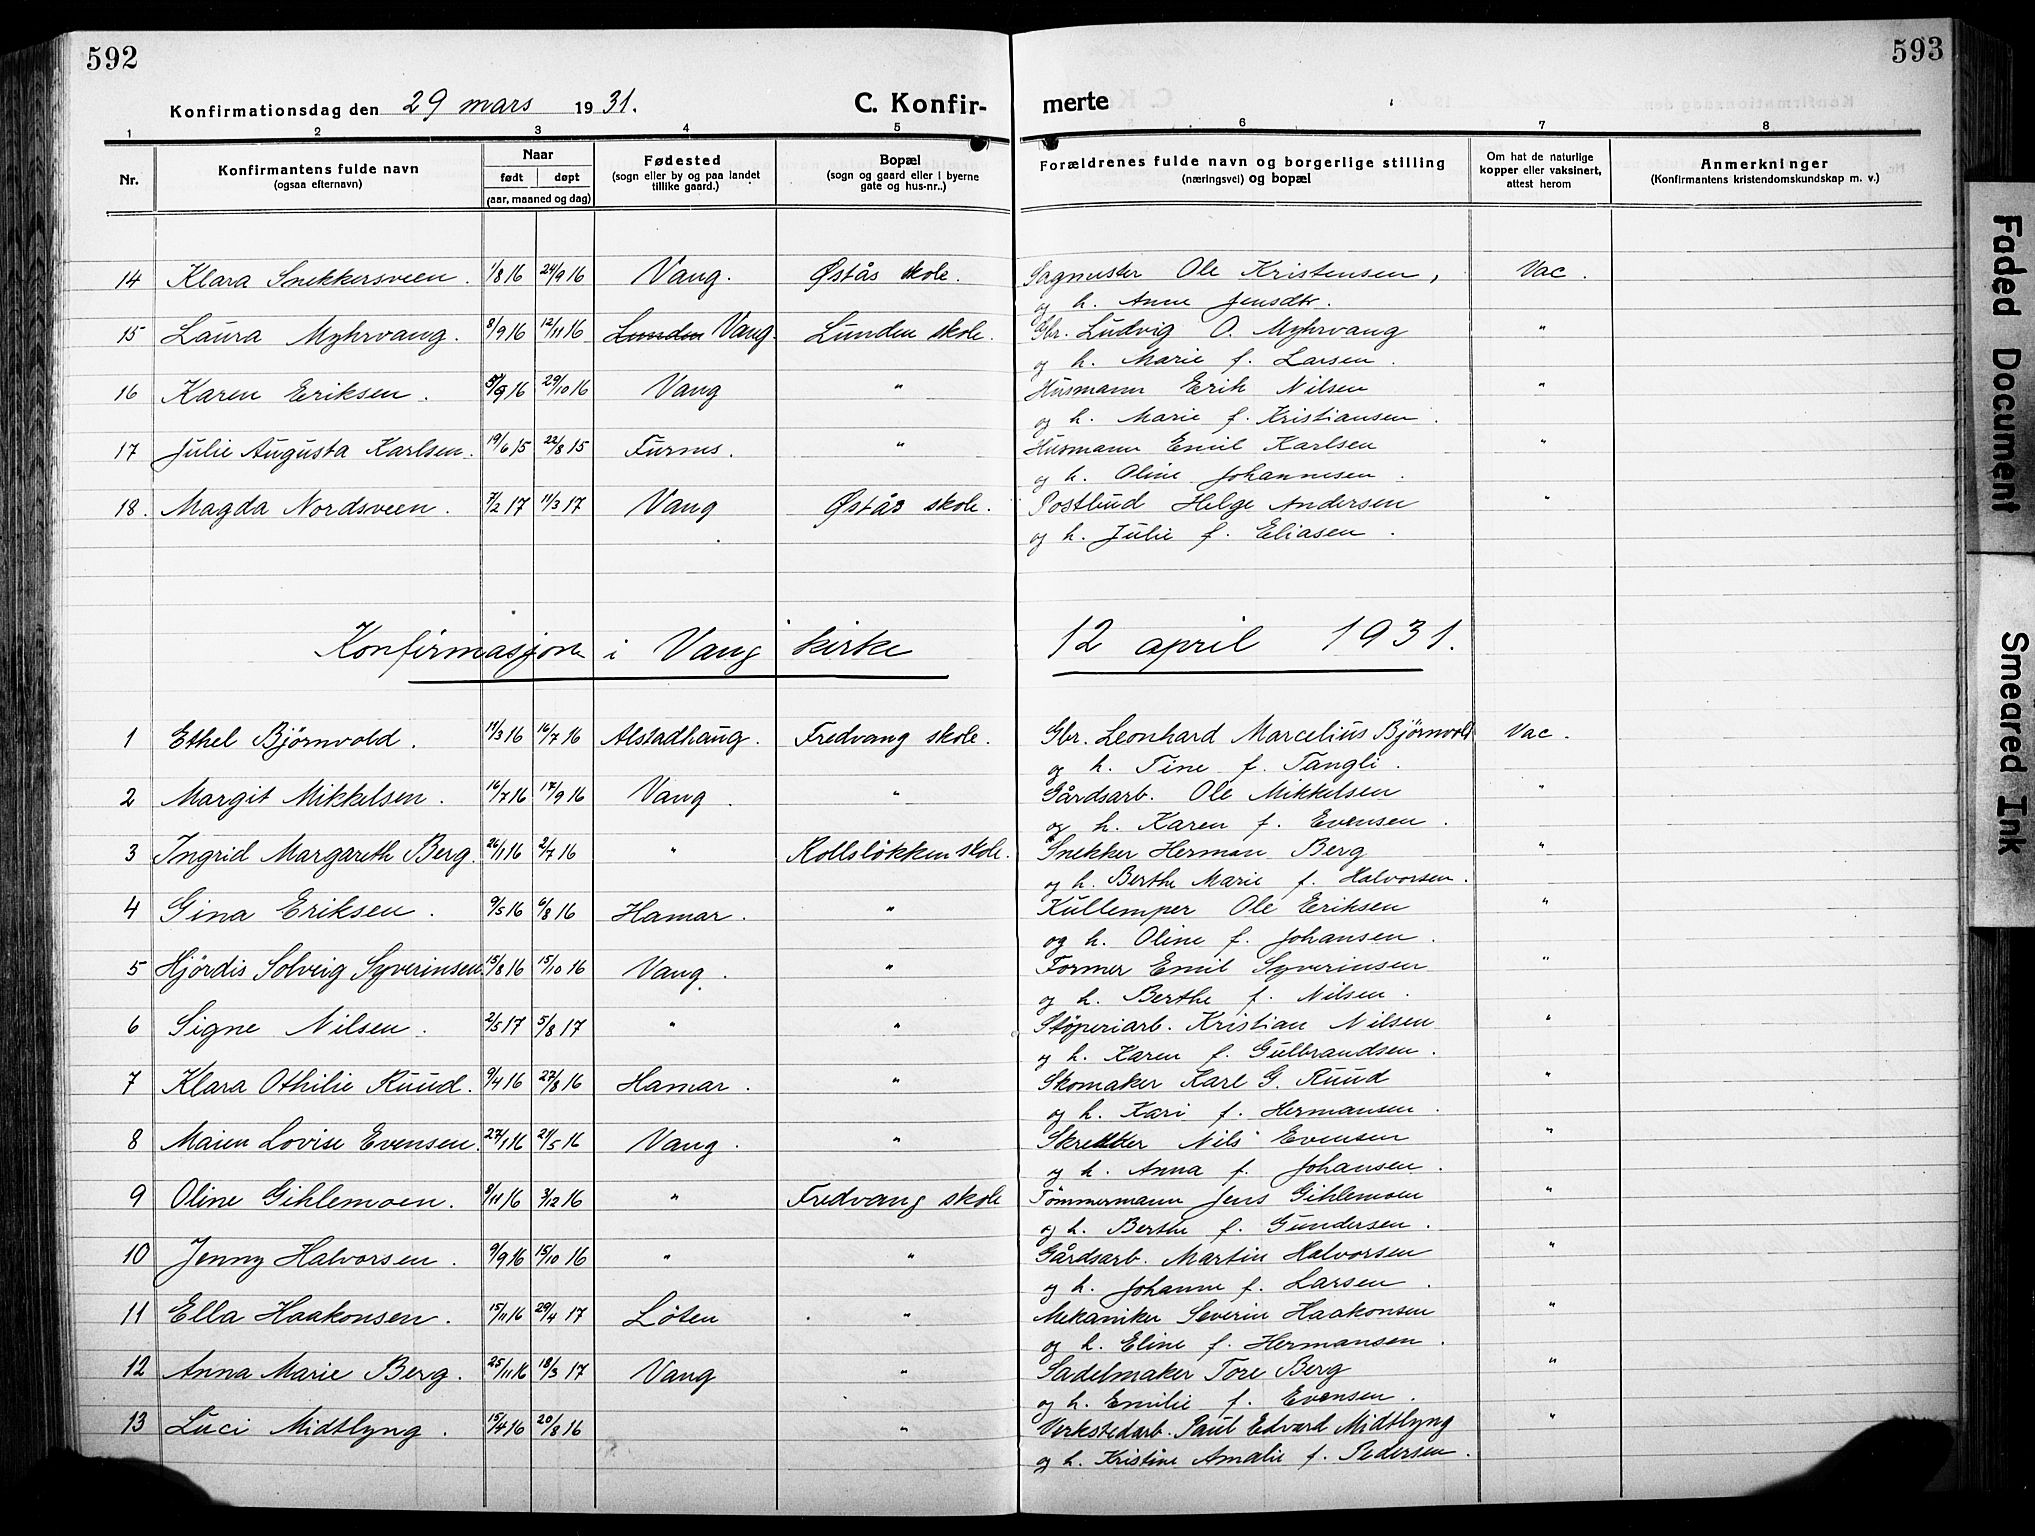 592
593
Konfirmationsdag den 29 mars 1931.
C. Konfirmerte
1 2 3 4 5 6 7 8
Nr.
Konfirmantens fulde navn
(ogsaa efternavn)
Naar
født døpt
(aar, maaned og dag)
Fødested
(sogn eller by og paa landet
tillike gaard.)
Bopæl
(sogn og gaard eller i byerne
gate og hus-nr..)
Forældrenes fulde navn og borgerlige stilling
(næringsvei) og bopæl
Om hat de naturlige
kopper eller vaksinert,
attest herom
Anmerkninger
(Konfirmantens kristendomskundskap m. v.)
14 Klara Snekkersveen. 1/8 16 24/9 16 Vang. Østås skole. Sagmester Ole Kristensen, Vac.
og h. Anne Jensdtr.
15 Laura Myhrvang. 8/9 16 12/11 16 Lunden Vang. Lunden skole. Gbr. Ludvig O. Myhrvang "
og h. Marie f. Larsen.
16 Karen Eriksen. 5/9 16 29/10 16 Vang " Husmann Erik Nilsen "
og h. Marie f. Kristiansen.
17 Julie Augusta Karlsen. 19/6 15 22/8 15 Furnes. " Husmann Emil Karlsen "
og h. Oline Johannesen.
18. Magda Nordsveen. 7/2 17 11/3 17 Vang Østås skole. Postbud Helge Andersen "
og h. Julie f. Eliasen.
Konfirmasjon i Vang kirke 12 april 1931.
1 Ethel Bjørnvold. 11/3 16 16/7 16 Alstadhaug. Fredvang skole. Gbr. Leonhard Marcelius Bjørnvold Vac.
og h. Tine f. Tangli.
2 Margit Mikkelsen. 16/7 16 17/9 16 Vang. " Gårdsarb. Ole Mikkelsen "
og h. Karen f. Evensen.
3 Ingrid Margareth Berg. 26/1 16 2/7 16 " Kollsløkken skole. Snekker Herman Berg "
og h. Berthe Marie f. Halvorsen.
4 Gina Eriksen. 9/5 16 6/8 16 Hamar. " Kullemper Ole Eriksen "
og h. Oline f. Johansen.
5 Hjördis Solveig Syverinsen. 15/8 16 15/10 16 Vang. " Former Emil Syverinsen "
og h. Berthe f. Nilsen.
6 Signe Nilsen. 2/5 17 5/8 17 " " Støperiarb. Kristian Nilsen "
og h. Karen f. Gulbrandsen.
7 Klara Othilie Ruud. 9/4 16 27/8 16 Hamar. " Skomaker Karl G. Ruud "
og h. Kari f. Hermansen.
8 Maien Lovise Evensen. 27/1 16 21/5 16 Vang. " Skredder Nils Evensen "
og h. Anna f. Johansen.
9 Oline Gihlemoen. 8/11 16 3/12 16 " Fredvang skole Tömmermann Jens Gihlemoen "
og h. Berthe f. Gundersen.
10 Jenny Halvorsen. 9/9 16 15/10 16 " " Gårdsarb. Martin Halvorsen "
og h. Johanne f. Larsen.
11 Ella Haakonsen. 15/11 16 29/4 17 Løten " Mekaniker Severin Haakonsen "
og h. Eline f. Hermansen.
12 Anna Marie Berg. 25/11 16 18/3 17 Vang " Sadelmaker Tore Berg "
og h. Emilie f. Evensen.
13 Luci Midtlyng. 15/4 16 20/8 16 " Verkstedarb. Paul Edvard Midtlyng "
og h. Kristine Amalie f. Pedersen.
Faded Document
Smeared Ink